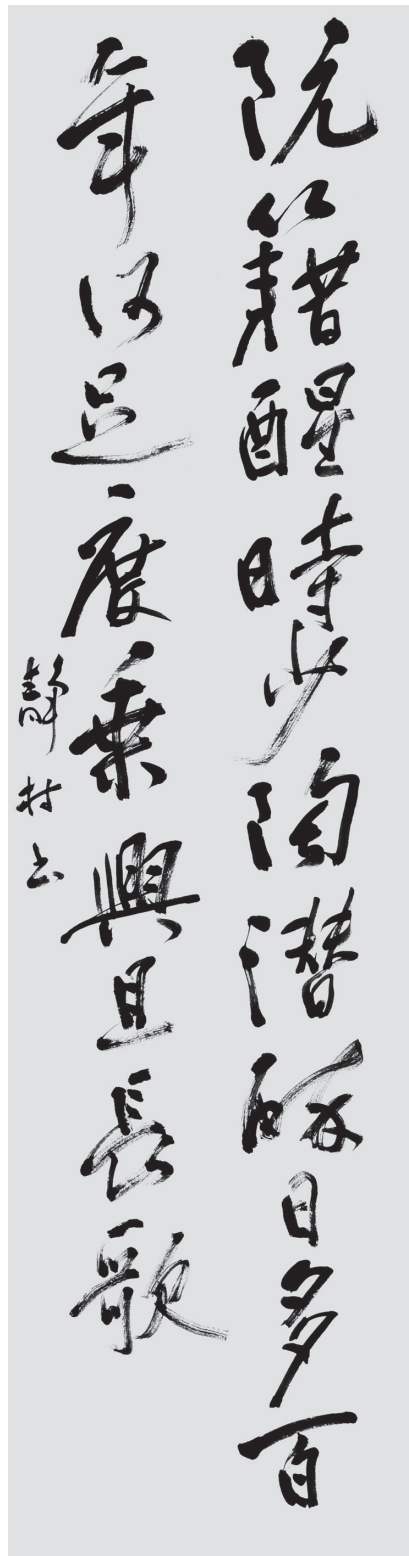 阮籍醒時少陶潛酔日多百
年何足度乗興且長歌
靜村書